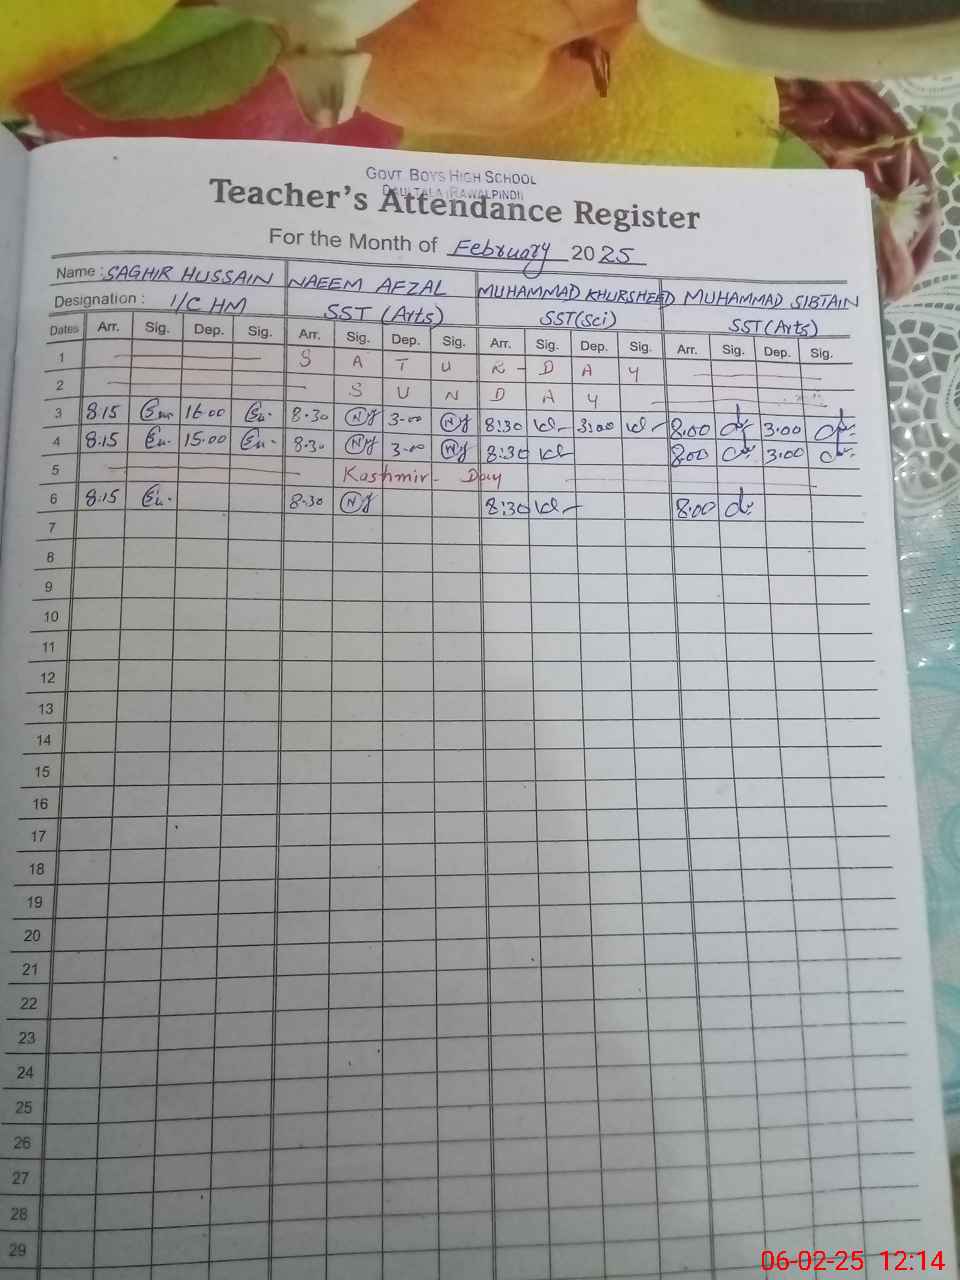 GOVT BOYS HIGH SCHOOL
DAULTALA (RAWALPINDI)
Teacher's Attendance Register
For the Month of February 2025
Name : SAGHIR HUSSAIN NAEEM AFZAL MUHAMMAD KHURSHEED MUHAMMAD SIBTAIN
Designation : I/C HM SST (Arts) SST(Sci) SST(Arts)
Dates Arr. Sig. Dep. Sig. Arr. Sig. Dep. Sig. Arr. Sig. Dep. Sig. Arr. Sig. Dep. Sig.
1 S A T U R - D A Y
2 S U N D A Y
3 8.15 16.00 8.30 3-00 8:30 3:00 8.00 3.00
4 8.15 15.00 8.30 3-00 8:30 8.00 3.00
5 Kashmir - Day
6 8.15 8.30 8:30 8.00
7
8
9
10
11
12
13
14
15
16
17
18
19
20
21
22
23
24
25
26
27
28
29
06-02-25 12:14